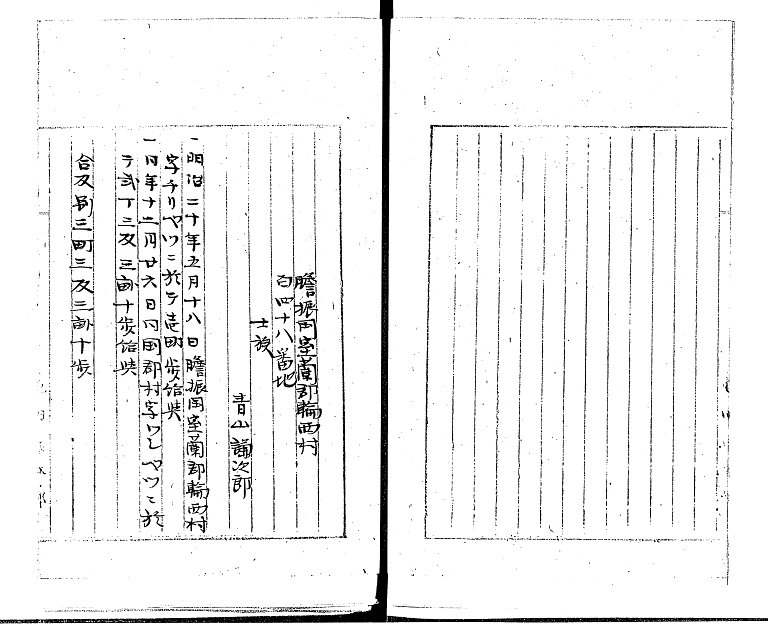 膽振国室蘭郡輪西村
百四十八番地
士族
青山諭次郎
一明治二十年五月十八日膽振国室蘭郡輪西村
字チリヤツニ於テ壱町歩給与
一同年十二月廿六日同国郡村字ワシヤツニ於
テ弐丁三反三畝十歩給与
合反別三町三反三畝十歩